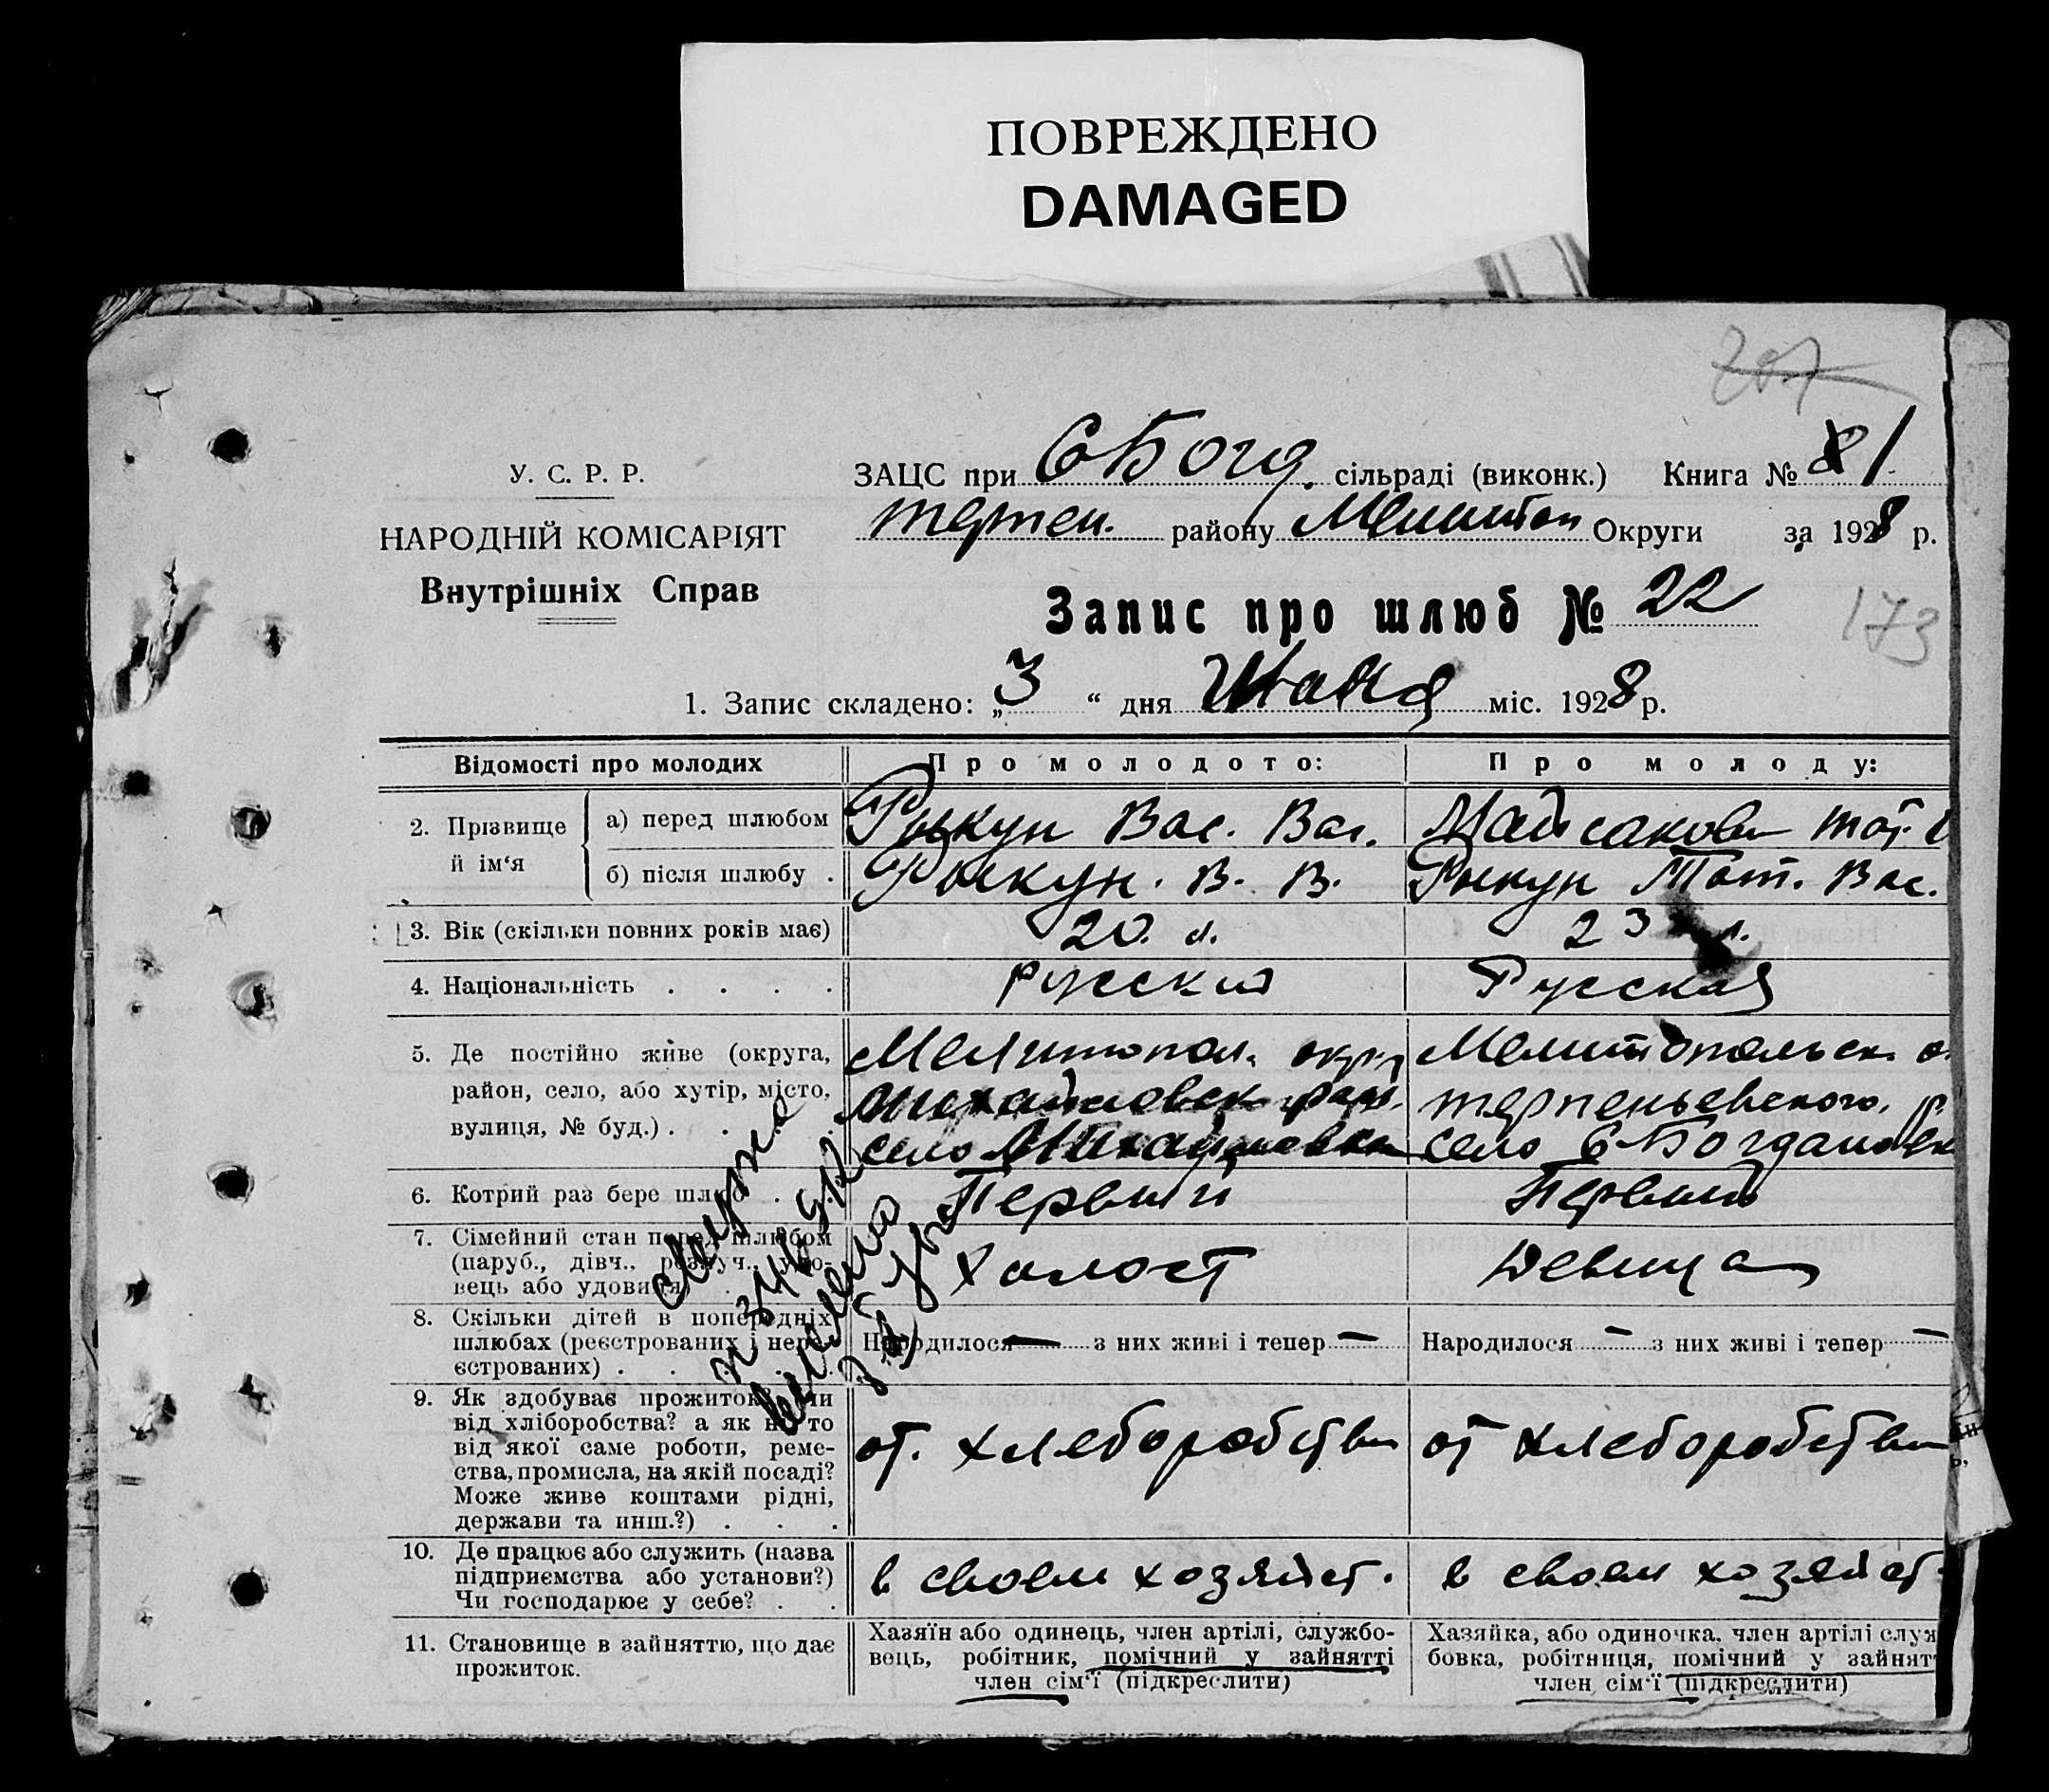 ПОВРЕЖДЕНО
DAMAGED
207
У. С. Р. Р.
НАРОДНІЙ КОМІСАРІЯТ
Внутрішніх Справ
ЗАЦС при С Богд. сільраді (виконк.) Книга № 1
терпен. району Мелитоп Округи за 1928 р.
Запис про шлюб № 22
173
1. Запис складено: „3“ дня міс. 1928 р.
Відомості про молодих
Про молодого:
Про молоду:
2. Прізвище й ім‘я
а) перед шлюбом
Рыкун Вас. Вас.
б) після шлюбу .
Рыкун. В. В.
Рыкун Тат. Вас.
3. Вік (скільки повних років має)
20. л.
23 л.
4. Національність . . . .
русский
Русская
5. Де постійно живе (округа,
район, село, або хутір, місто,
вулиця, № буд.) . . .
Мелитопол. окр.
Михайловск. рай.
село Михайловка
Мелитопольск. о
терпеньевского. р
село С Богдановк
6. Котрий раз бере шлюб . .
Первый
Первый
7. Сімейний стан перед шлюбом
(паруб., дівч., розлуч., удо-
вець або удовиця) .
Холост
Девица
8. Скільки дітей в попередніх
шлюбах (реєстрованих і нере-
єстрованих) . . . .
Народилося — з них живі і тепер —
Народилося — з них живі і тепер —
9. Як здобуває прожиток? чи
від хліборобства? а як ні, то
від якої саме роботи, реме-
ства, промисла, на якій посаді?
Може живе коштами рідні,
держави та инш.?) . . .
от. хлеборобства
от хлеборобства
10. Де працює або служить (назва
підприємства або установи?)
Чи господарює у себе? . .
в своем хозяйст.
в своем хозяйст.
11. Становище в зайняттю, що дає
прожиток.
Хазяїн або одинець, член артілі, службо-
вець, робітник, помічний у зайнятті
член сім‘ї (підкреслити)
Хазяйка, або одиночка, член артілі служ
бовка, робітниця, помічний у зайнят
член сім‘ї (підкреслити)